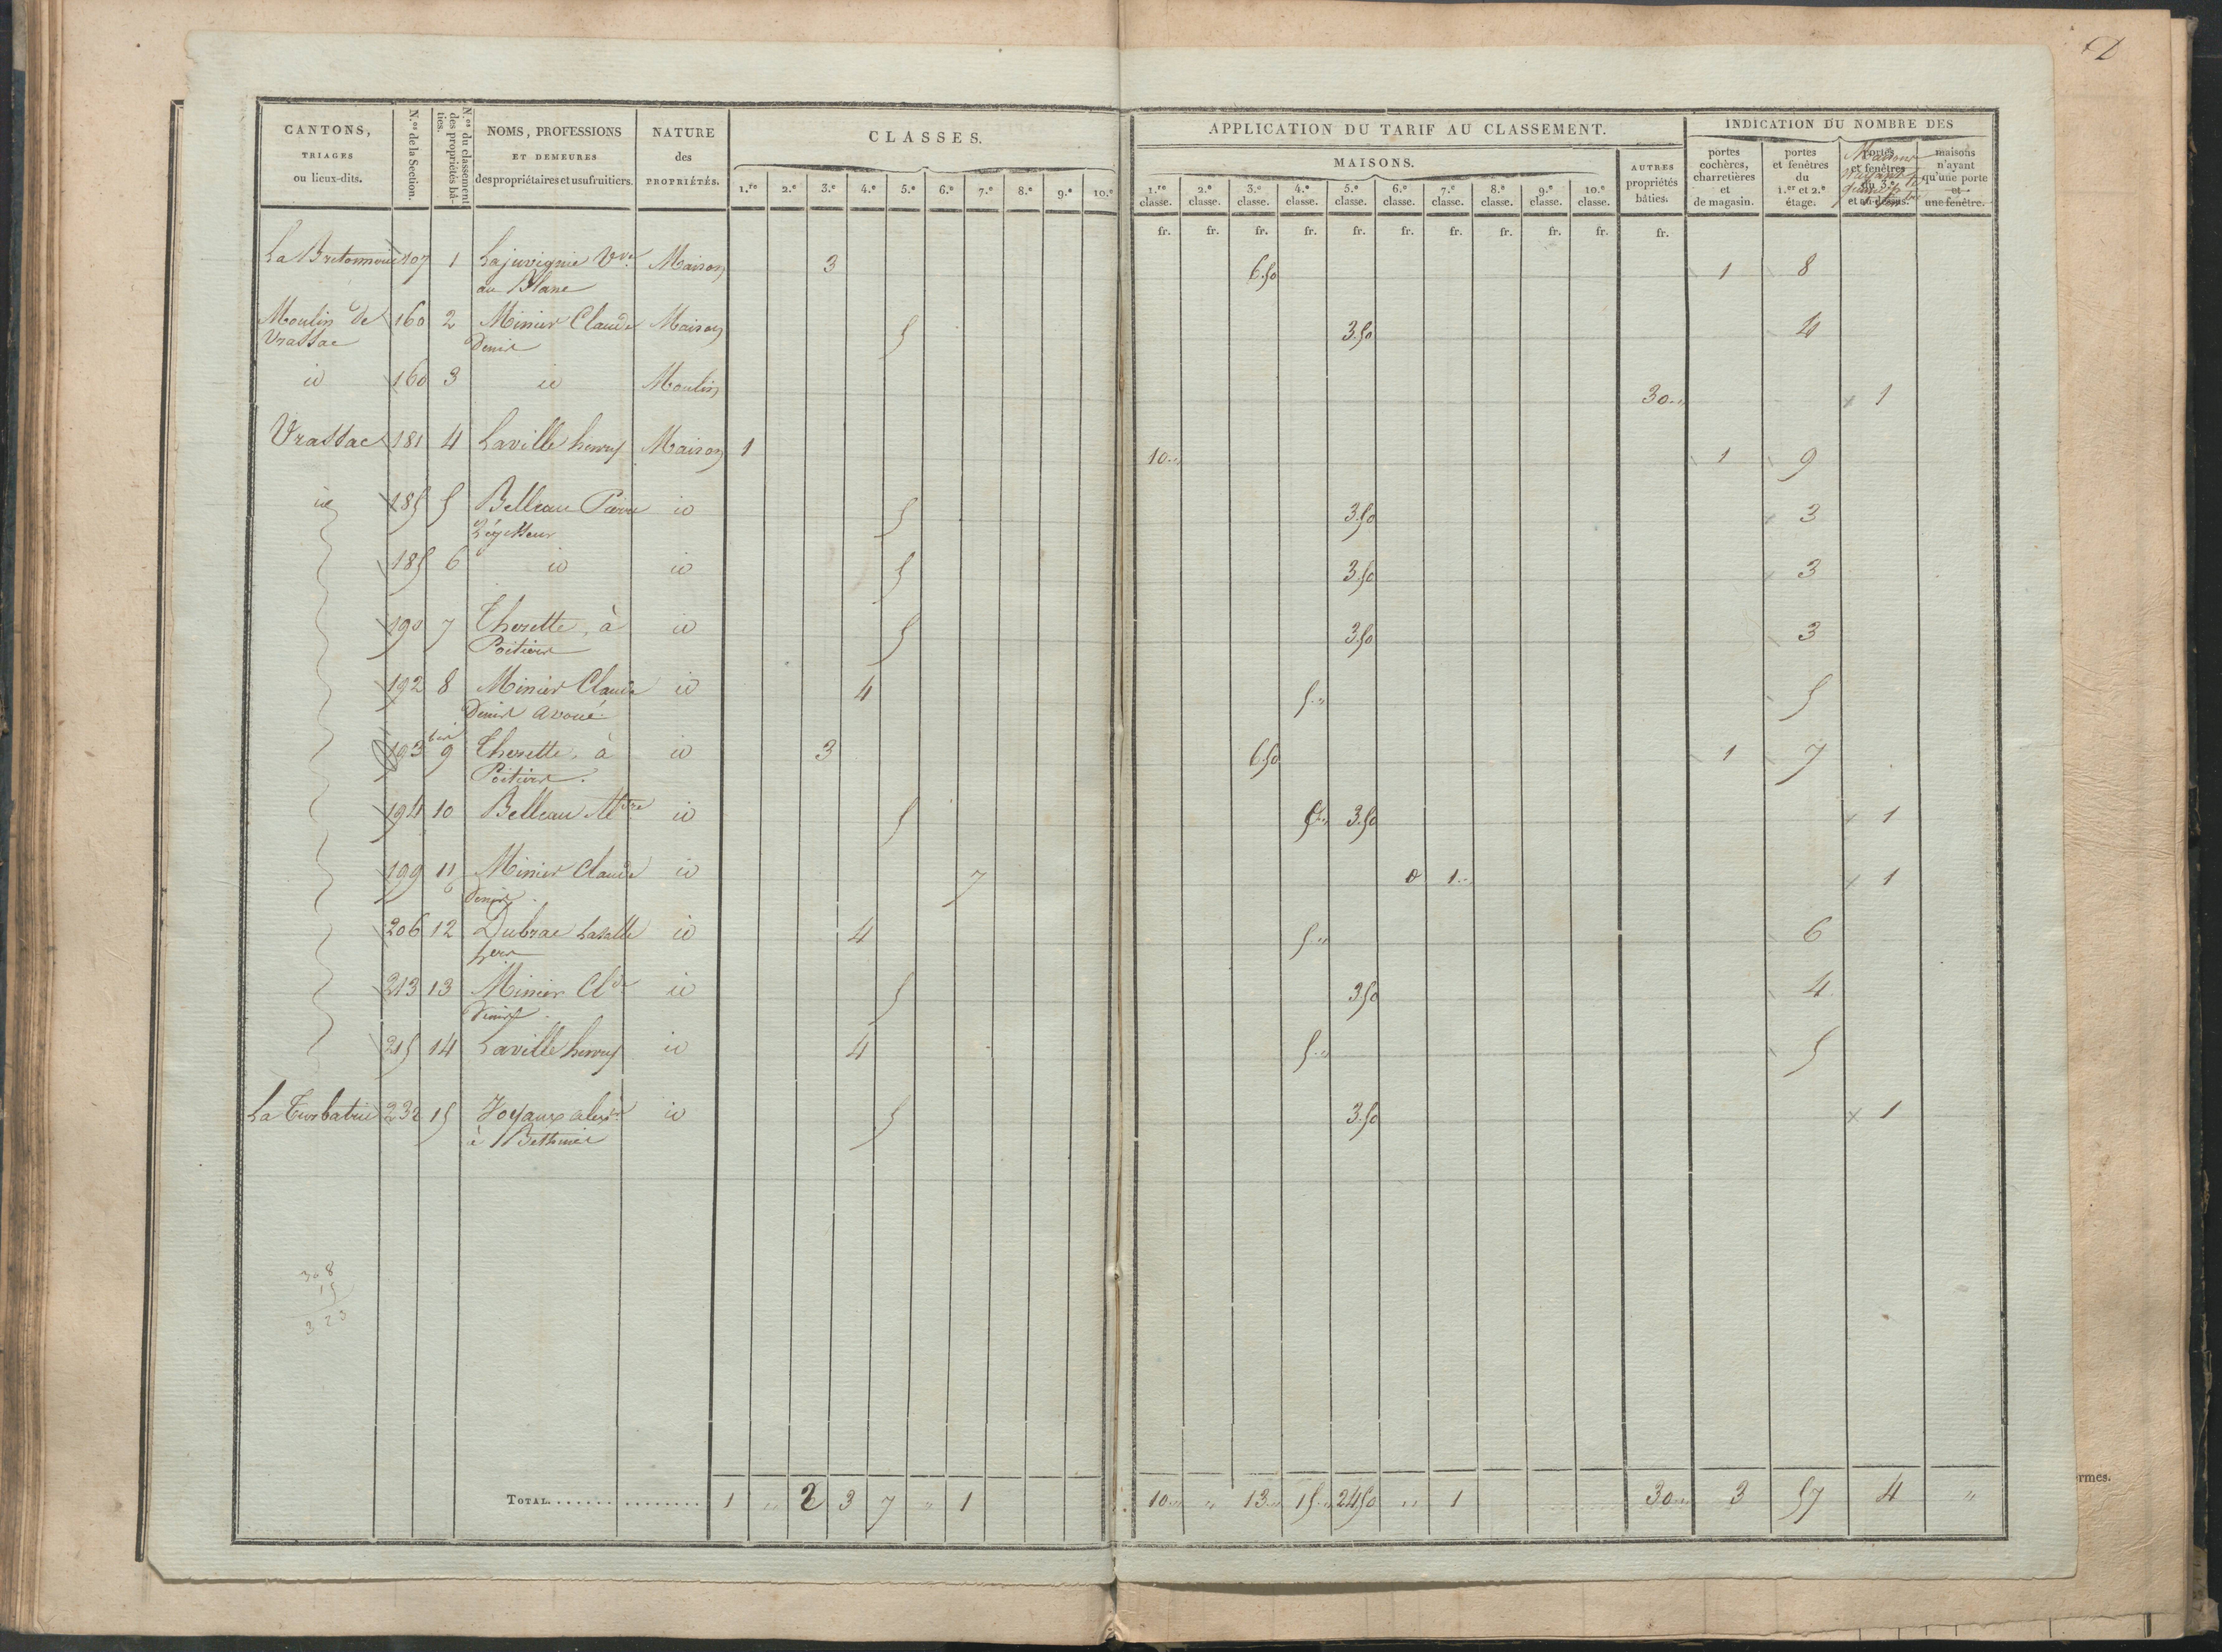 CANTONS,
TRIAGES
ou lieux-dits.
N.os de la Section.
N.os du classement des propriétés bâties.
NOMS, PROFESSIONS
ET DEMEURES
des propriétaires et usufruitiers.
NATURE
des
PROPRIÉTÉS.
CLASSES.
1.re 2.e 3.e 4.e 5.e 6.e 7.e 8.e 9.e 10.e
APPLICATION DU TARIF AU CLASSEMENT.
MAISONS.
1.re classe. 2.e classe. 3.e classe. 4.e classe. 5.e classe. 6.e classe. 7.e classe. 8.e classe. 9.e classe. 10.e classe.
AUTRES
propriétés
bâties.
INDICATION DU NOMBRE DES
portes
cochères,
charretières
et
de magasin.
portes
et fenêtres
du
1.er et 2.e
étage.
portes
et fenêtres
du 3.e
et au-dessus.
maisons
n'ayant
qu'une porte
et
une fenêtre.
fr. fr. fr. fr. fr. fr. fr. fr. fr. fr. fr.
La Bretonnerie 107 1 Lajuvignie Vve Maison 3 6.50 1 8
au Blanc
Moulin de 160 2 Minier Claude Maison 5 3.50 4
Vrassac Denis
id 160 3 id Moulin 30.,, 1
Vrassac 181 4 Laville henry Maison 1 10.,, 1 9
id 185 5 Belleau Pierre id 5 3.50 3
185 6 id id 5 3.50 3
190 7 Thorette, à id 5 3.50 3
Poitiers
192 8 Minier Claude id 4 5.,, 5
Denis avoué
193 bis 9 Thorette, à id 3 6.50 1 7
Poitiers.
194 10 Belleau id 5 3.50 1
199 11 Minier Claude id 7 1.,, 1
Denis
206 12 Dubrac Lasalle id 4 5.,, 6
213 13 Minier Cl.de id 5 3.50 4
Denis
215 14 Laville henry id 4 5.,, 5
La Turbatrie 232 15 Joyaux id 5 3.50 1
à
308
15
323
TOTAL. . . . . . . . . . . . . . . . 1 ,, 2 3 7 ,, 1 10.,, ,, 13.,, 15.,, 24.50 ,, 1 30.,, 3 57 4 ,,
rmes.